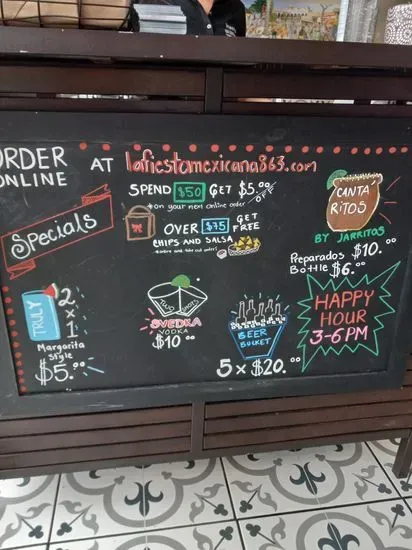 ORDER AT lafiestamexicana863.com
ONLINE
SPEND $50 GET $5.00
*on your next online order
OVER $75 GET
FREE
CHIPS AND SALSA
Specials
CANTA
RITOS
BY JARRITOS
Preparados $10.00
Bottle $6.00
TRULY
2
x
1
Margarita
Style
$5.00
TWO SHOTS
SVEDKA
VODKA
$10.00
BEER
BUCKET
5 x $20.00
HAPPY
HOUR
3-6 PM